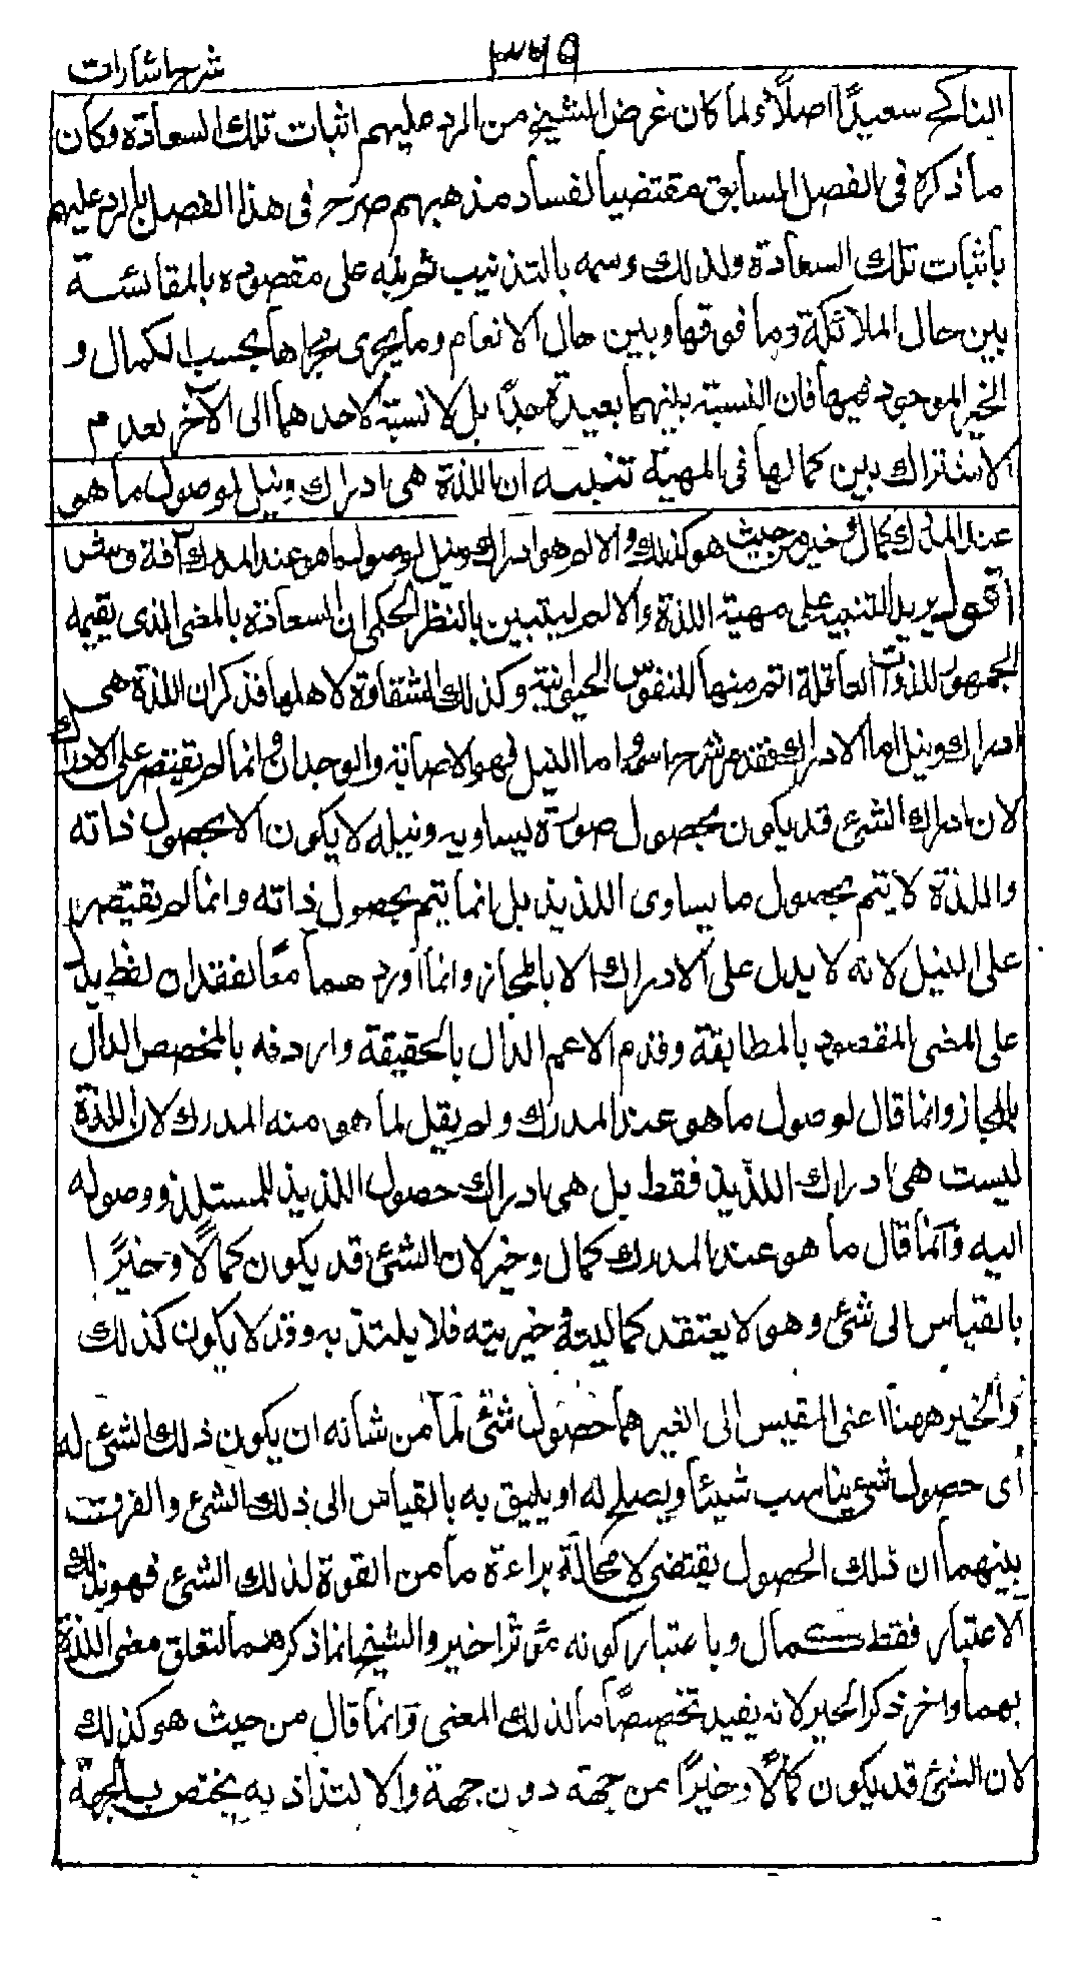 شرح اشارات
٣٤٩
الناكح سعيدًا اصلًا ولما كان غرض الشيخ من الرد عليهم اثبات تلك السعادة وكان
ما ذكره فى الفصل السابق مقتضيا لفساد مذهبهم صرح فى هذا الفصل بالرد عليهم
باثبات تلك السعادة ولذلك وسمه بالتذنيب ثم نبه على مقصوده بالمقائسة
بين حال الملائكة وما فوقها وبين حال الانعام وما يجرى مجراها بحسب الكمال و
الخير الموجود فيهما فان النسبة بينهما بعيدة جدًا بل لا نسبة لاحدهما الى الآخر لعدم
الاشتراك بين كمالها فى المهية تنبيه ان اللذة هى ادراك ونيل لوصول ما هو
عند المدرك كمال وخير من حيث هو كذلك والالم هو ادراك ونيل لوصول ما هو عند المدرك آفة وشر
اقول يريد التنبيه على مهية اللذة والالم ليتبين بالنظر الحكمى ان السعادة بالمعنى الذى يقيمه
الجمهور للذوات العاقلة اتم منها للنفوس الحيوانية وكذلك الشقاوة لاهلها فذكر ان اللذة هى
ادراك ونيل اما الادراك فقد مر شرح اسمه واما النيل فهو الاصابة والوجدان وانما لم يقتصر على الادراك
لان ادراك الشئ قد يكون بحصول صورة يساويه ونيله لا يكون الا بحصول ذاته
واللذة لا يتم بحصول ما يساوى اللذيذ بل انما يتم بحصول ذاته وانما لم يقتصر
على النيل لانه لا يدل على الادراك الا بالمجاز وانما اورد هما معًا لفقدان لفظ يدل
على المعنى المقصود بالمطابقة وقدم الاعم الدال بالحقيقة واردفه بالمخصص الدال
بالمجاز وانما قال لوصول ما هو عند المدرك ولم يقل لما هو منه المدرك لان اللذة
ليست هى ادراك اللذيذ فقط بل هى ادراك حصول اللذيذ للمستلذ ووصوله
اليه وانما قال ما هو عند المدرك كمال وخير لان الشئ قد يكون كمالًا وخيرًا
بالقياس الى شئ وهو لا يعتقد كماليته وخيريته فلا يلتذ به وقد لا يكون كذلك
والخير ههنا اعنى المقيس الى الغير هما حصول شئ لما من شانه ان يكون ذلك الشئ له
اى حصول شئ يناسب شيئا ويصلح له او يليق به بالقياس الى ذلك الشئ والفرق
بينهما ان ذلك الحصول يقتضى لا محالة براءة ما من القوة لذلك الشئ فهو بذلك
الاعتبار فقط كمال وباعتبار كونه مؤثرا خير والشيخ انما ذكرهما لتعلق معنى اللذة
بهما واخر ذكر الخير لانه يفيد تخصيصًا ما لذلك المعنى وانما قال من حيث هو كذلك
لان الشئ قد يكون كمالًا وخيرًا من جهة دون جهة والالتذاذ به يختص بالجهة